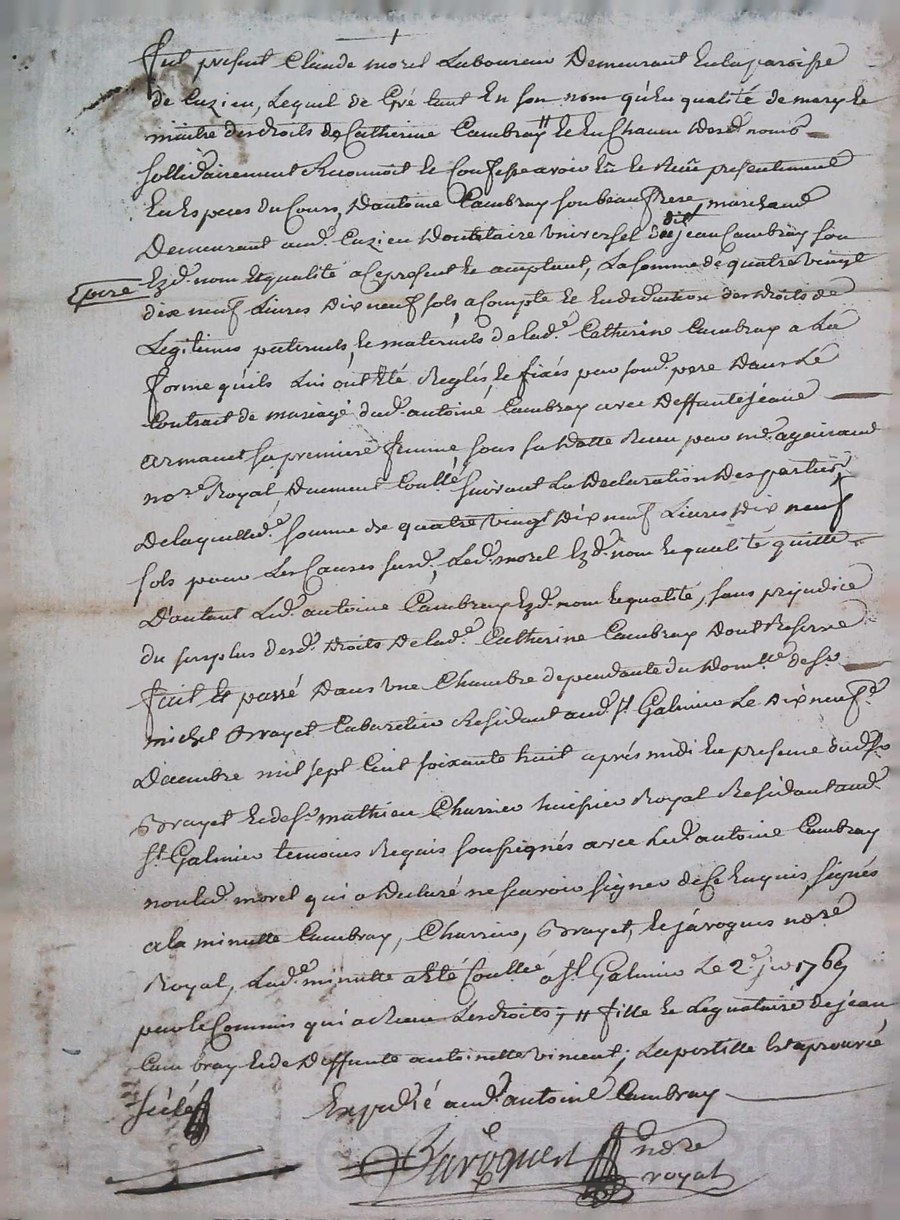 fut present Claude morel Laboureur Demeurant En la paroisse
de Cuzieu, Lequel de Gré tant En son nom qu'En qualité de mary Et
maitre des droits de Catherine Cambray # Et En Chacun Desd. noms
sollidairement Reconnoit Et Confesse avoir Eû Et Reçû presentement
En Especes du Cours, D'antoine Cambray son beau frere, marchand
Demeurant aud. Cuzieu donataire Universel dud. jean Cambray son
pere Ezd. nom Et qualité a Ce present Et acceptant, La somme de quatre vingt
dix neuf Livres Dix neuf sols, a Compte Et En deduction des Droits de
Legitimes paternels, Et maternels de lad.e Catherine Cambray a La
forme qu'ils Lui ont Eté Reglés, Et fixés par sond. pere Dans Le
Contrat de mariage dud. antoine Cambray avec Deffunte jeanne
armanet sa premiere femme, sous sa Datte Recu par me.
no.re Royal Duement Conllé suivant La Declaration Des parties
De laquelle d.e somme de quatre vingt Dix neuf Livres Dix neuf
sols pour Les Causes susd., Led. morel Ezd. nom Et qualité quitte
D'autant Led. antoine Cambray Ezd. nom Et qualité, sans prejudice
du surplus desd. Droits De lad.e Catherine Cambray Dont Reserve
fait Et passé Dans une Chambre dependante du Dom.lle de Sr.
michel Brayet Cabaretier Residant aud. St. Galmier Le Dix neuf.e
Décembre mil sept Cent soixante huit après midi En presence dud. Sr.
Brayet Et de Sr. mathieu Charrier huissier Royal Residant aud.
St. Galmier temoins Requis soussignés avec Led. antoine Cambray
non led. morel qui a Declaré ne scavoir signer de Ce Enquis, signés
a la minutte Cambray, Charrier, Brayet, Et javogues no.re
Royal, Lad.e minutte a Eté Conllée a St. Galmier Le 2.e jer 1769
par le Commis qui a Receu Les droits; # fille Et Legataire de jean
Cambray Et de Deffunte antoinette vincent; La postille Est aprouvée
scélé
Expedié aud. antoine Cambray
Javogues
no.re
royal